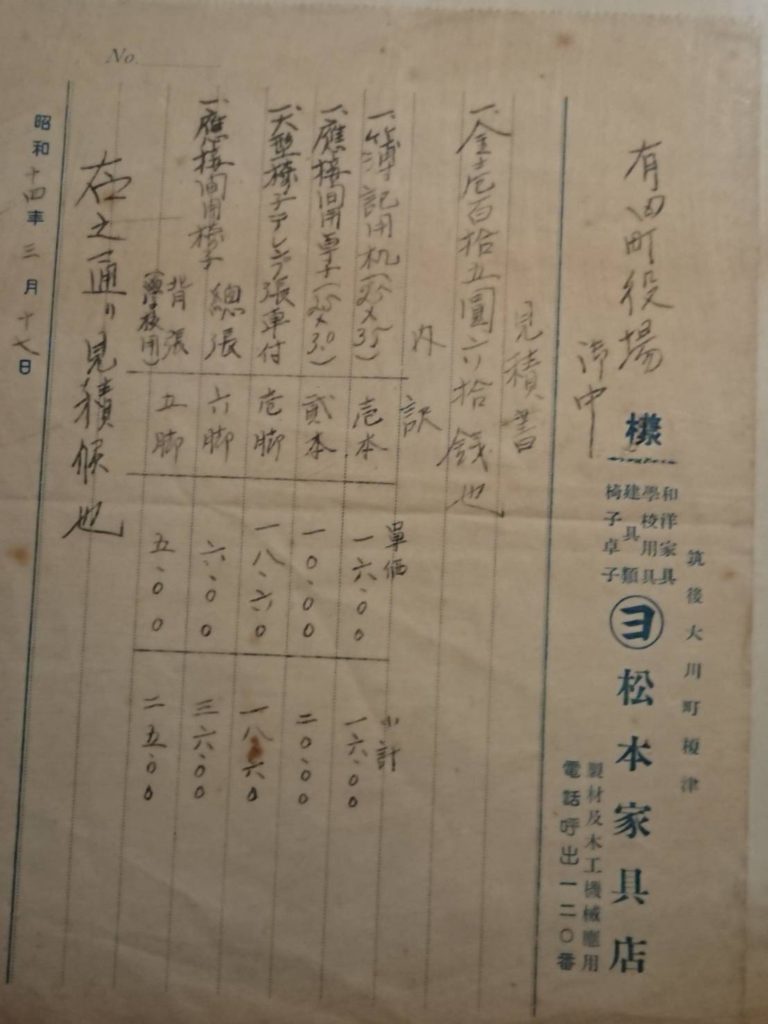 No.
有田町役場
御中
樣
筑後大川町榎津
和洋家具
學校用具
建具類
椅子卓子
ヨ 松本家具店
製材及木工機械應用
電話呼出一二〇番
見積書
一、金壱百拾五圓六拾錢也
内訳
單価
小計
一、簿記用机(25×35) 壱本 一六.〇〇 一六.〇〇
一、應接間用卓子(25×30) 貳本 一〇.〇〇 二〇.〇〇
一、大型椅子 張車付 壱脚 一八.六〇 一八.六〇
一、應接間用椅子 總張 六脚 六.〇〇 三六.〇〇
背張 五脚 五.〇〇 二五.〇〇
右之通り見積候也
昭和十四年三月十七日